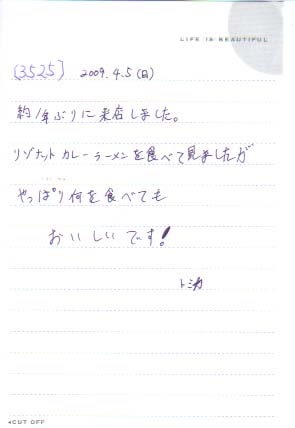 LIFE IS BEAUTIFUL
(3525) 2009.4.5(日)
約1年ぶりに来店しました。
リゾナットカレーラーメンを食べて見ましたが
やっぱり何を食べても
おいしいです!
◂CUT OFF